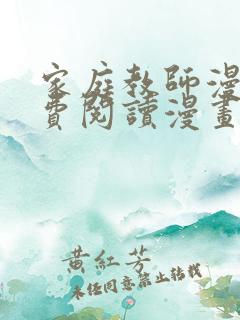 家庭教師漫
費閱讀漫畫
黃紅芳
未经同意禁止转载